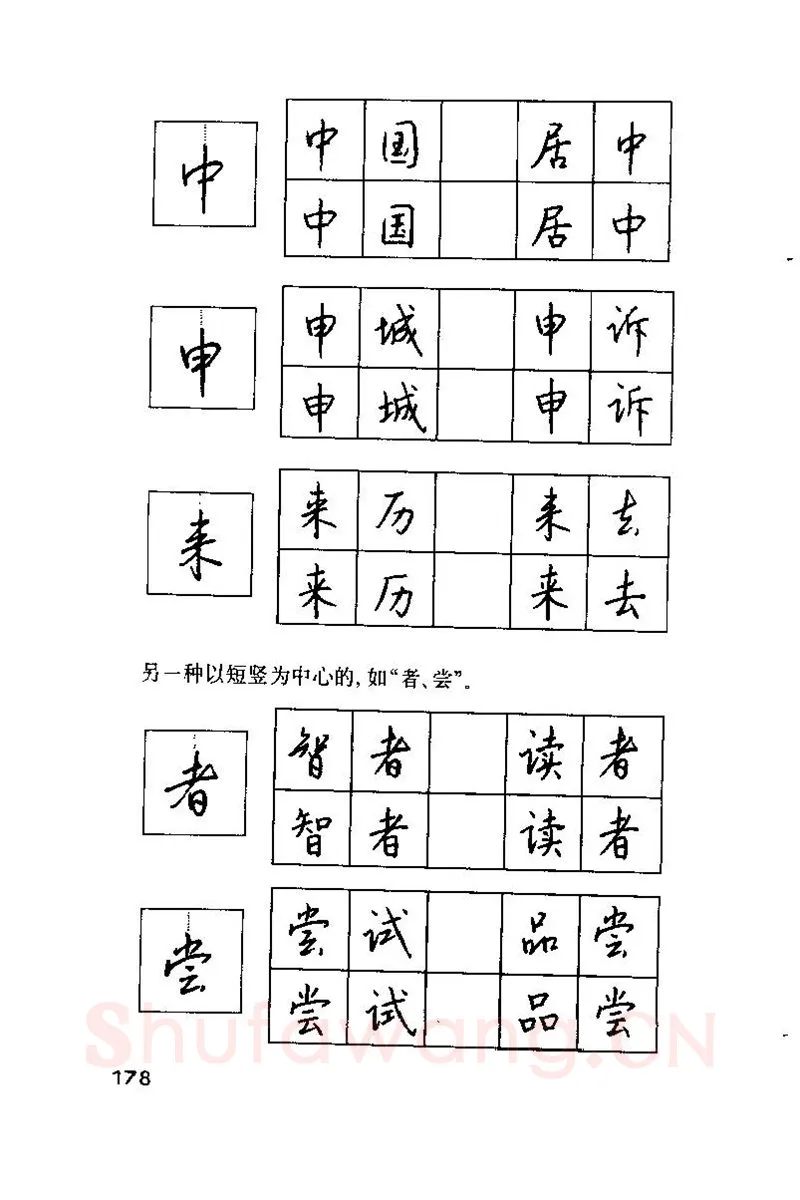 中 国 居 中
中
中 国 居 中
申 城 申 诉
申
申 城 申 诉
来 历 来 去
来
来 历 来 去
另一种以短竖为中心的，如“者、尝”。
智 者 读 者
者
智 者 读 者
尝 试 品 尝
尝
尝 试 品 尝
Shufawang.CN
178